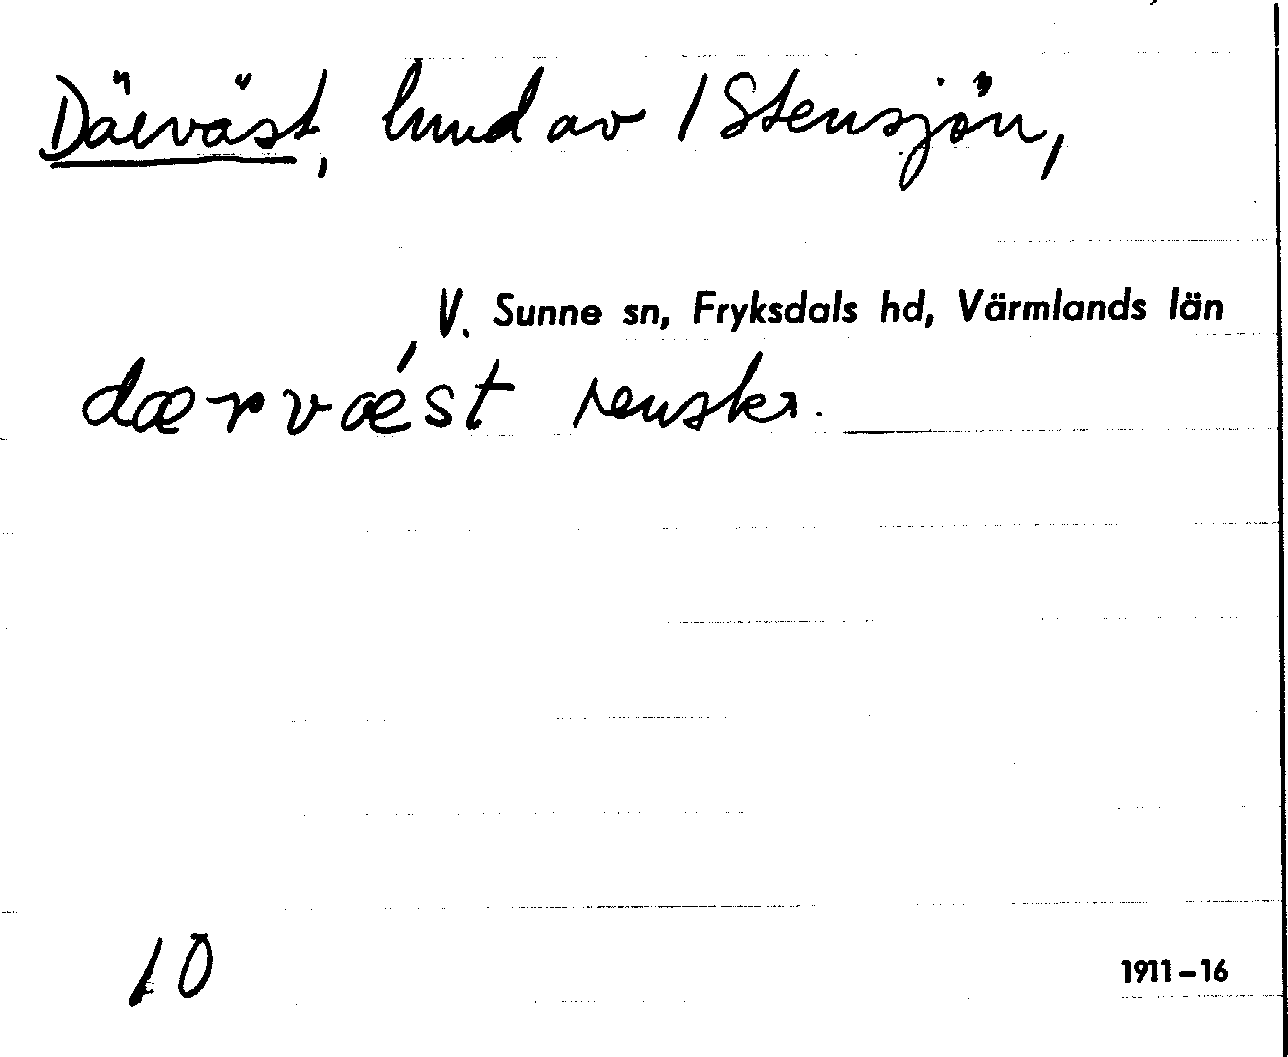 Därväst, lmud av 1 Stensjön,
V. Sunne sn, Fryksdals hd, Värmlands län
dærvǽst renskr.
10
1911–16